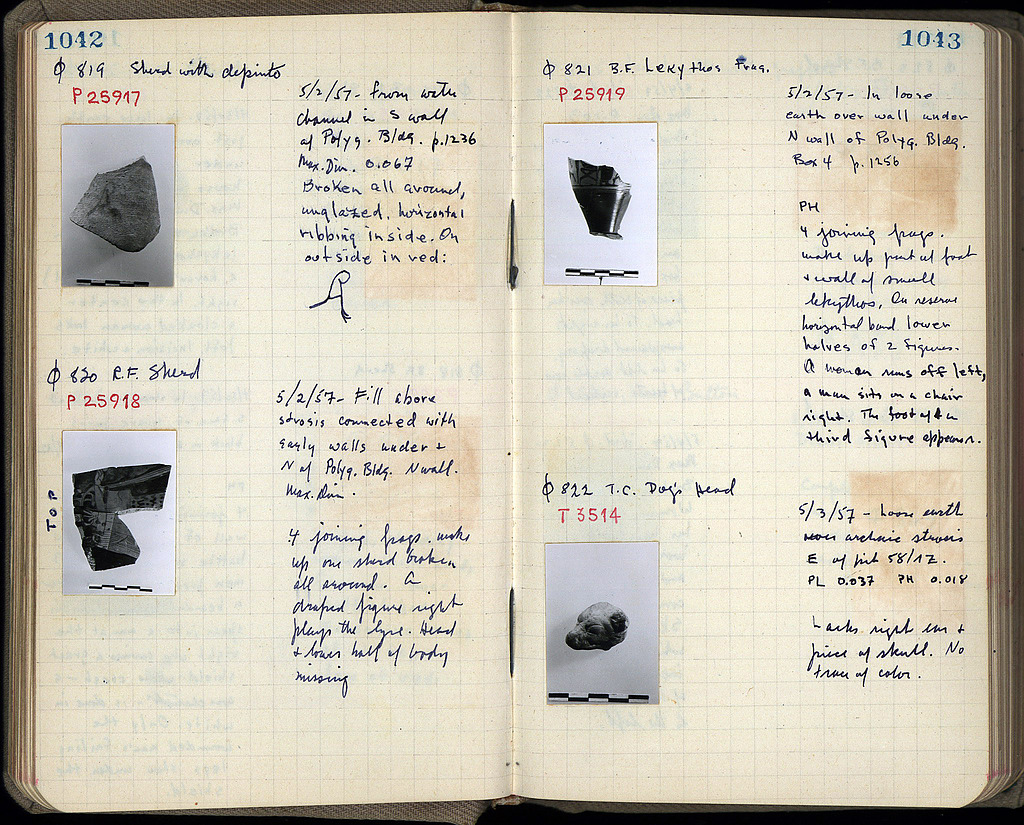 1042
Φ 819 Sherd with dipinto
P 25917
5/2/57 - From water
channel in S wall
of Polyg. Bldg. p.1236
Max. Dim. 0.067
Broken all around,
unglazed, horizontal
ribbing inside. On
outside in red:
Φ 820 R.F. Sherd
P 25918
TOP
5/2/57 - Fill above
strosis connected with
early walls under +
N of Polyg. Bldg. N wall.
Max. Dim.
4 joining frags. make
up one sherd broken
all around. A
draped figure right
plays the lyre. Head
+ lower half of body
missing
1043
Φ 821 B.F. Lekythos Frag.
P 25919
5/2/57 - In loose
earth over wall under
N wall of Polyg. Bldg.
Box 4 p. 1256
PH
4 joining frags.
make up part of foot
+ wall of small
lekythos. On reserve
horizontal band lower
halves of 2 figures.
A woman runs off left,
a man sits on a chair
right. The foot of a
third figure appears.
Φ 822 T.C. Dog's Head
T 3514
5/3/57 - Loose earth
archaic strosis
E of pit 58/ΙΖ.
PL 0.037 PH 0.018
Lacks right ear +
piece of skull. No
trace of color.